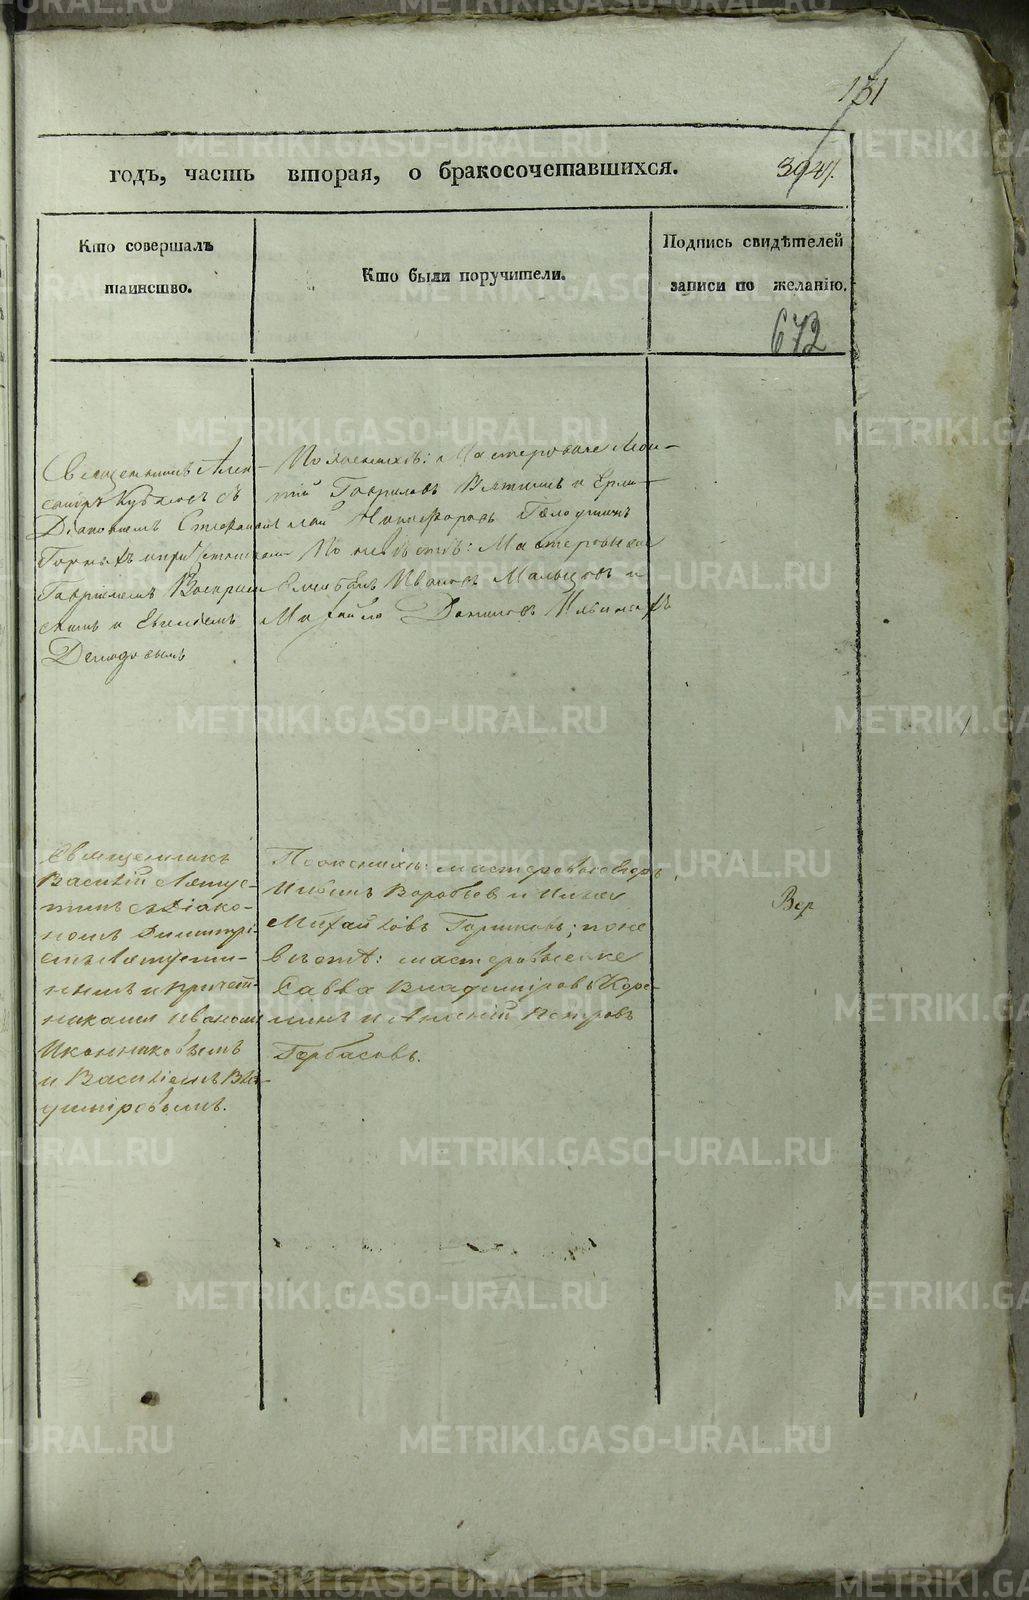 131
годъ, часть вторая, о бракосочетавшихся.
394.
Кто совершалъ
таинство.
Кто были поручители.
Подпись свидѣтелей
записи по желанію.
672
Священникъ Алек-
сандръ с
Діакономъ Стефаномъ
Горныхъ и
Гавриломъ Воскресен
скимъ и Евгеніемъ
Демидовымъ
По женихѣ: Мастеровые
Гавриловъ Вяткинъ и Ерми-
лай Никифоровъ
По невѣстѣ: Мастеровые
Ивановъ Мальцовъ и
Михайло Даниловъ
Священникъ
Василій Лятус-
тинъ съ Діако-
номъ Димитрі-
емъ
нымъ и причет-
никами Иваномъ
Иконниковымъ
и Василіемъ Вла-
димировымъ.
По женихѣ: мастеровые Егоръ
Воробьев и Илья
Михайловъ Горшковъ; по не
вѣстѣ: мастеровые
Савва Владиміровъ
и Алексій Петровъ
Горбасовъ.
Вер
METRIKI.GASO-URAL.RU